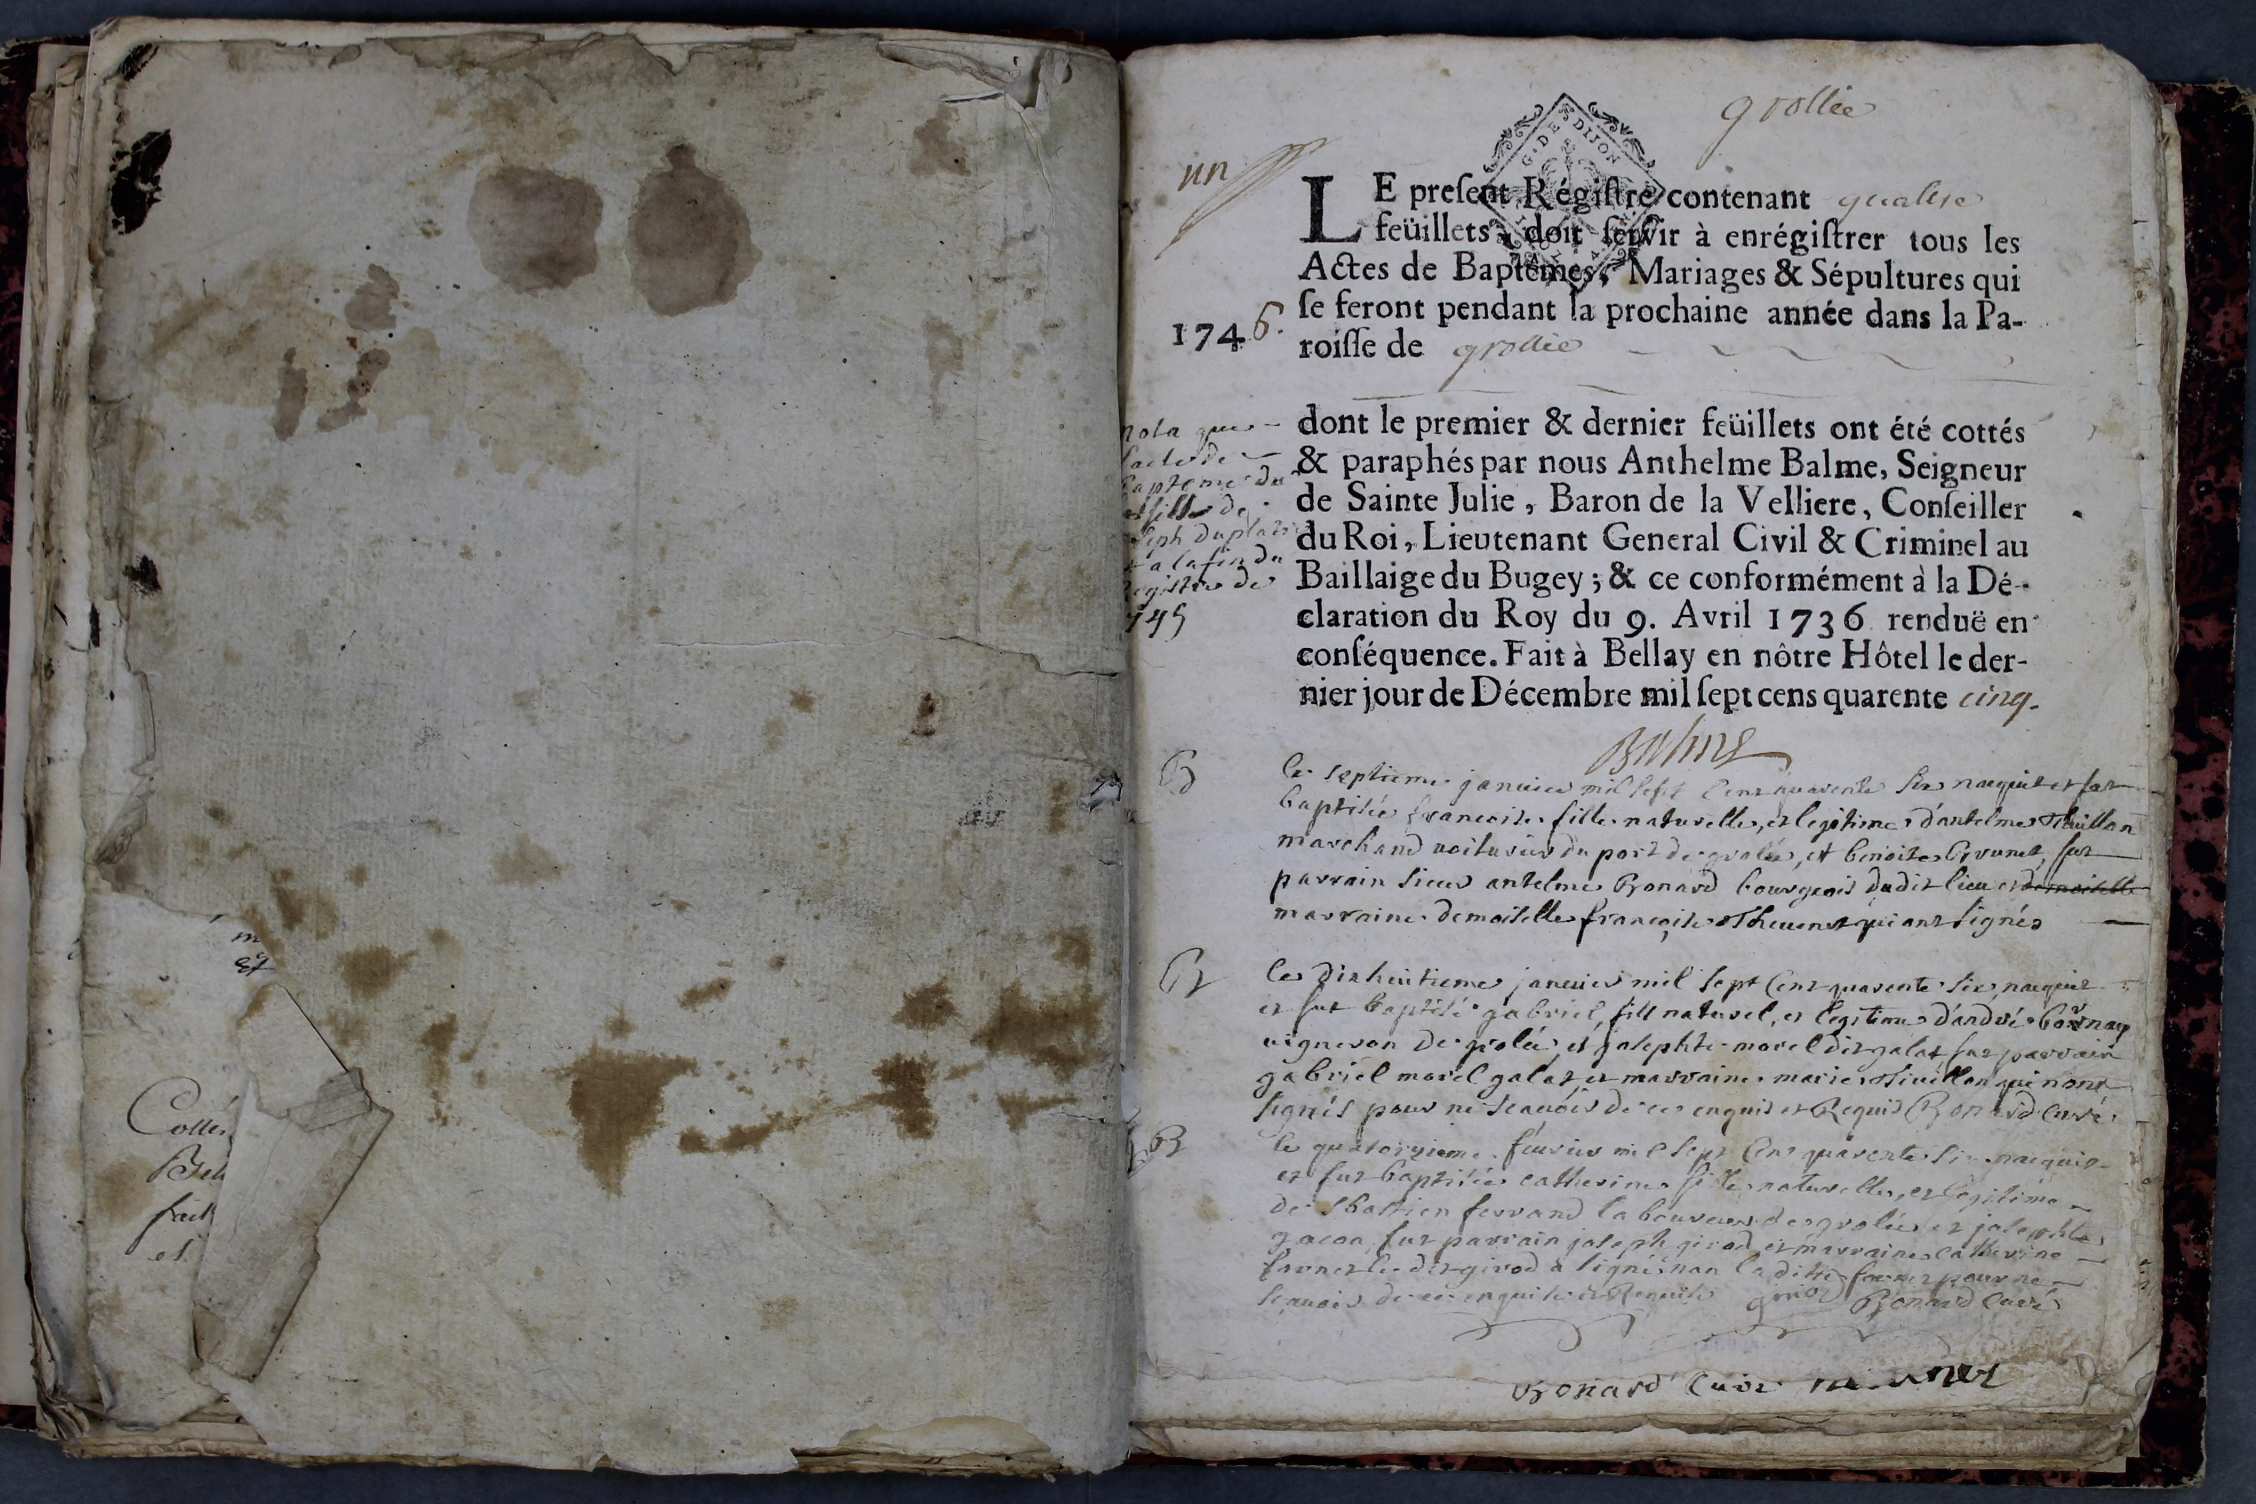 m
et
Collé
Bel
fait
et
grollée
un
G. DE DIJON
LE preſent Régiſtre contenant quatre
feüillets, doit ſervir à enrégiſtrer tous les
Actes de Baptêmes, Mariages & Sépultures qui
ſe feront pendant la prochaine année dans la Pa-
1746.
roiſſe de grollée
dont le premier & dernier feüillets ont été cottés
& paraphés par nous Anthelme Balme, Seigneur
de Sainte Julie, Baron de la Velliere, Conſeiller
du Roi, Lieutenant General Civil & Criminel au
Baillaige du Bugey; & ce conformément à la Dé-
claration du Roy du 9. Avril 1736 renduë en
conſéquence. Fait à Bellay en nôtre Hôtel le der-
nier jour de Décembre mil ſept cens quarente cinq.
Balme
nota que
lacte de
Bapteme du
fille de
seph duplatr
a la fin du
registre de
745
B
Le septieme janvier mil sept cent quarente six naquit et fut
baptisée francoise fille naturelle, et legitime d'antelme
marchand voiturier du port de grolée, et benoite Brunet, fut
parrain sieur antelme Bonard bourgeois dudit lieu et demoiselle
marraine demoiselle françoise Thevenet qui ont signés
B
Le dixhuitieme janvier mil sept cent quarente six, naquit
et fut baptisé gabriel, fils naturel, et legitime d'andré
vigneron de grolée, et josephte morel dit galat, fut parrain
gabriel morel galat, et marraine marie qui n'ont
signés pour ne scavoir de ce enquis et Requis Bonard curé
B
le quatorzieme fevrier mil sept cent quarente six naquit
et fut baptisée catherine fille naturelle, et legitime
de sbastien ferrand laboureur de grolée et josephte
gacon, fut parrain joseph girod et marraine catherine
le dit girod a signé non la ditte pour ne
scavoir de ce enquise et Requise girod Bonard curé
Bonard curé